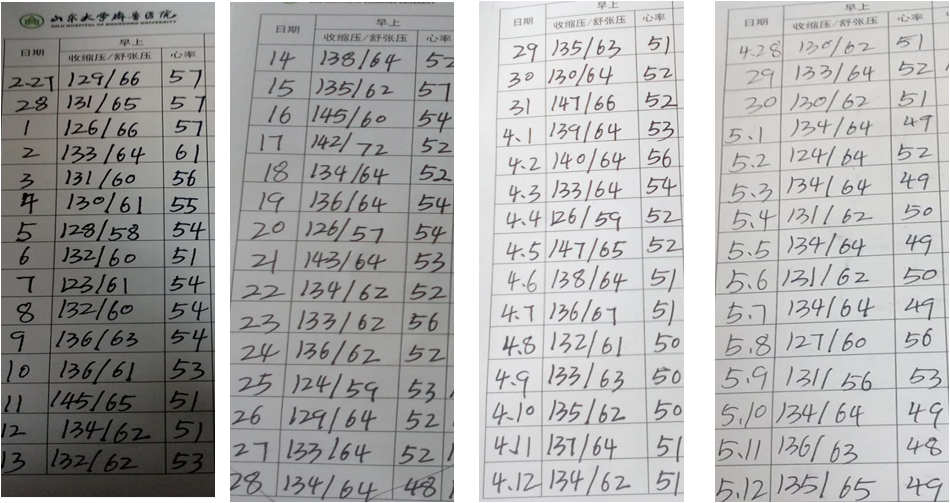 山东大学齐鲁医院
SHANDONG UNIVERSITY
日期 早上
收缩压/舒张压 心率
2.27 129/66 57
28 131/65 57
1 126/66 57
2 133/64 61
3 131/60 56
4 130/61 55
5 128/58 54
6 132/60 51
7 123/61 54
8 132/60 54
9 136/63 54
10 136/61 53
11 145/65 51
12 134/62 51
13 132/62 53
日期 早上
收缩压/舒张压 心率
14 138/64 52
15 135/62 57
16 145/60 54
17 142/72 52
18 134/64 52
19 136/64 54
20 126/57 54
21 143/64 53
22 134/62 52
23 133/62 56
24 136/62 52
25 124/59 53
26 129/64 52
27 133/64 52
28 134/64 48
29 135/63 51
30 130/64 52
31 147/66 52
4.1 139/64 53
4.2 140/64 56
4.3 133/64 54
4.4 126/59 52
4.5 147/65 52
4.6 138/64 51
4.7 136/67 51
4.8 132/61 50
4.9 133/63 50
4.10 135/62 50
4.11 137/64 51
4.12 134/62 51
日期 早上
收缩压/舒张压 心率
4.28 130/62 51
29 133/64 52
30 130/62 51
5.1 134/64 49
5.2 124/64 52
5.3 134/64 49
5.4 131/62 50
5.5 134/64 49
5.6 131/62 50
5.7 134/64 49
5.8 127/60 56
5.9 131/56 53
5.10 134/64 49
5.11 136/63 48
5.12 135/65 49